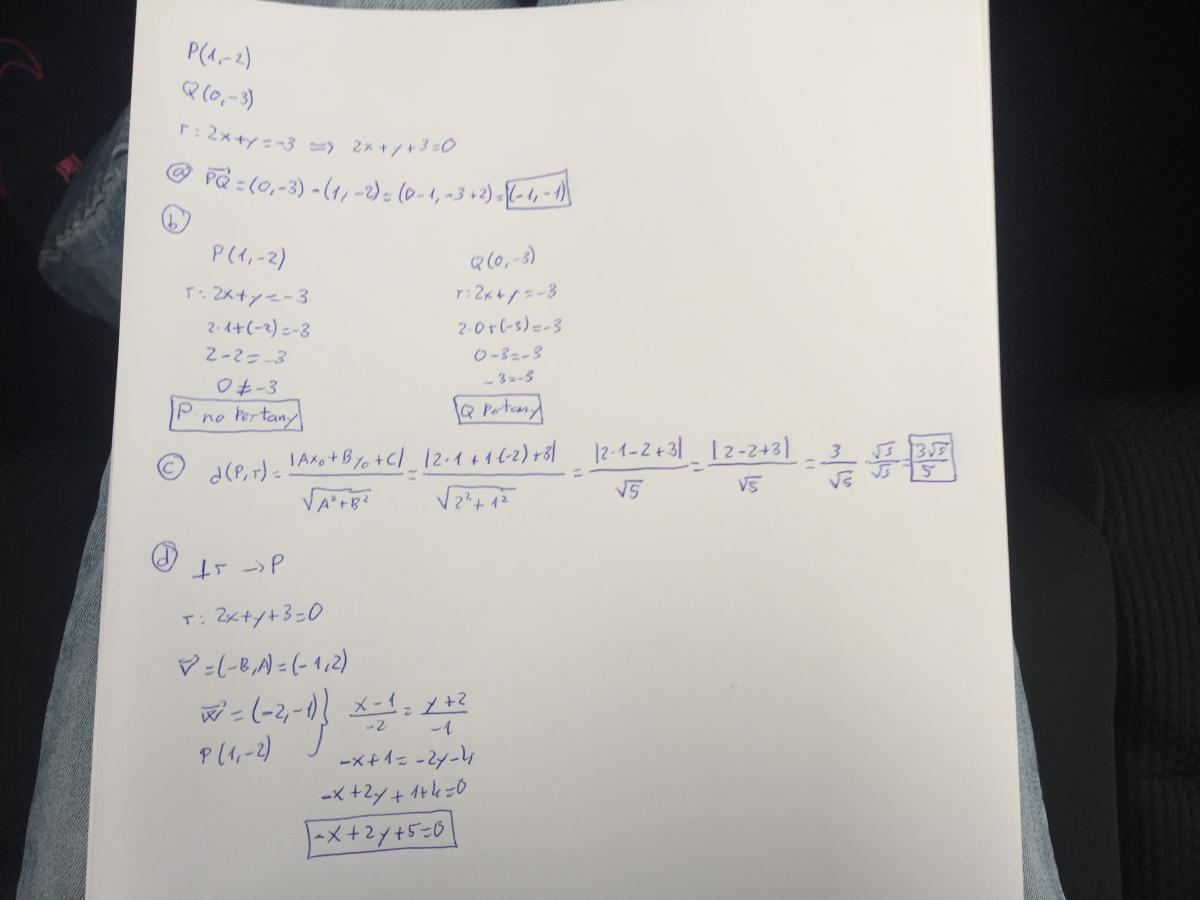 P(1,-2)
Q(0,-3)
r: 2x+y=-3 ⟹ 2x+y+3=0
ⓐ \overrightarrow{PQ}=(0,-3)-(1,-2)=(0-1,-3+2)=(-1,-1)
ⓑ
P(1,-2) Q(0,-3)
r: 2x+y=-3 r: 2x+y=-3
2·1+(-2)=-3 2·0+(-3)=-3
2-2=-3 0-3=-3
0≠-3 -3=-3
P no Pertany Q Pertany
ⓒ d(P,r)=\frac{|Ax₀+By₀+C|}{\sqrt{A²+B²}}=\frac{|2·1+1(-2)+3|}{\sqrt{2²+1²}}=\frac{|2·1-2+3|}{\sqrt{5}}=\frac{|2-2+3|}{\sqrt{5}}=\frac{3}{\sqrt{5}} \frac{\sqrt{5}}{\sqrt{5}}=\frac{3\sqrt{5}}{5}
ⓓ ⊥r → P
r: 2x+y+3=0
\vec{v}=(-B,A)=(-1,2)
\vec{w}=(-2,-1)} \frac{x-1}{-2}=\frac{y+2}{-1}
P(1,-2)
-x+1=-2y-4
-x+2y+1+4=0
-x+2y+5=0